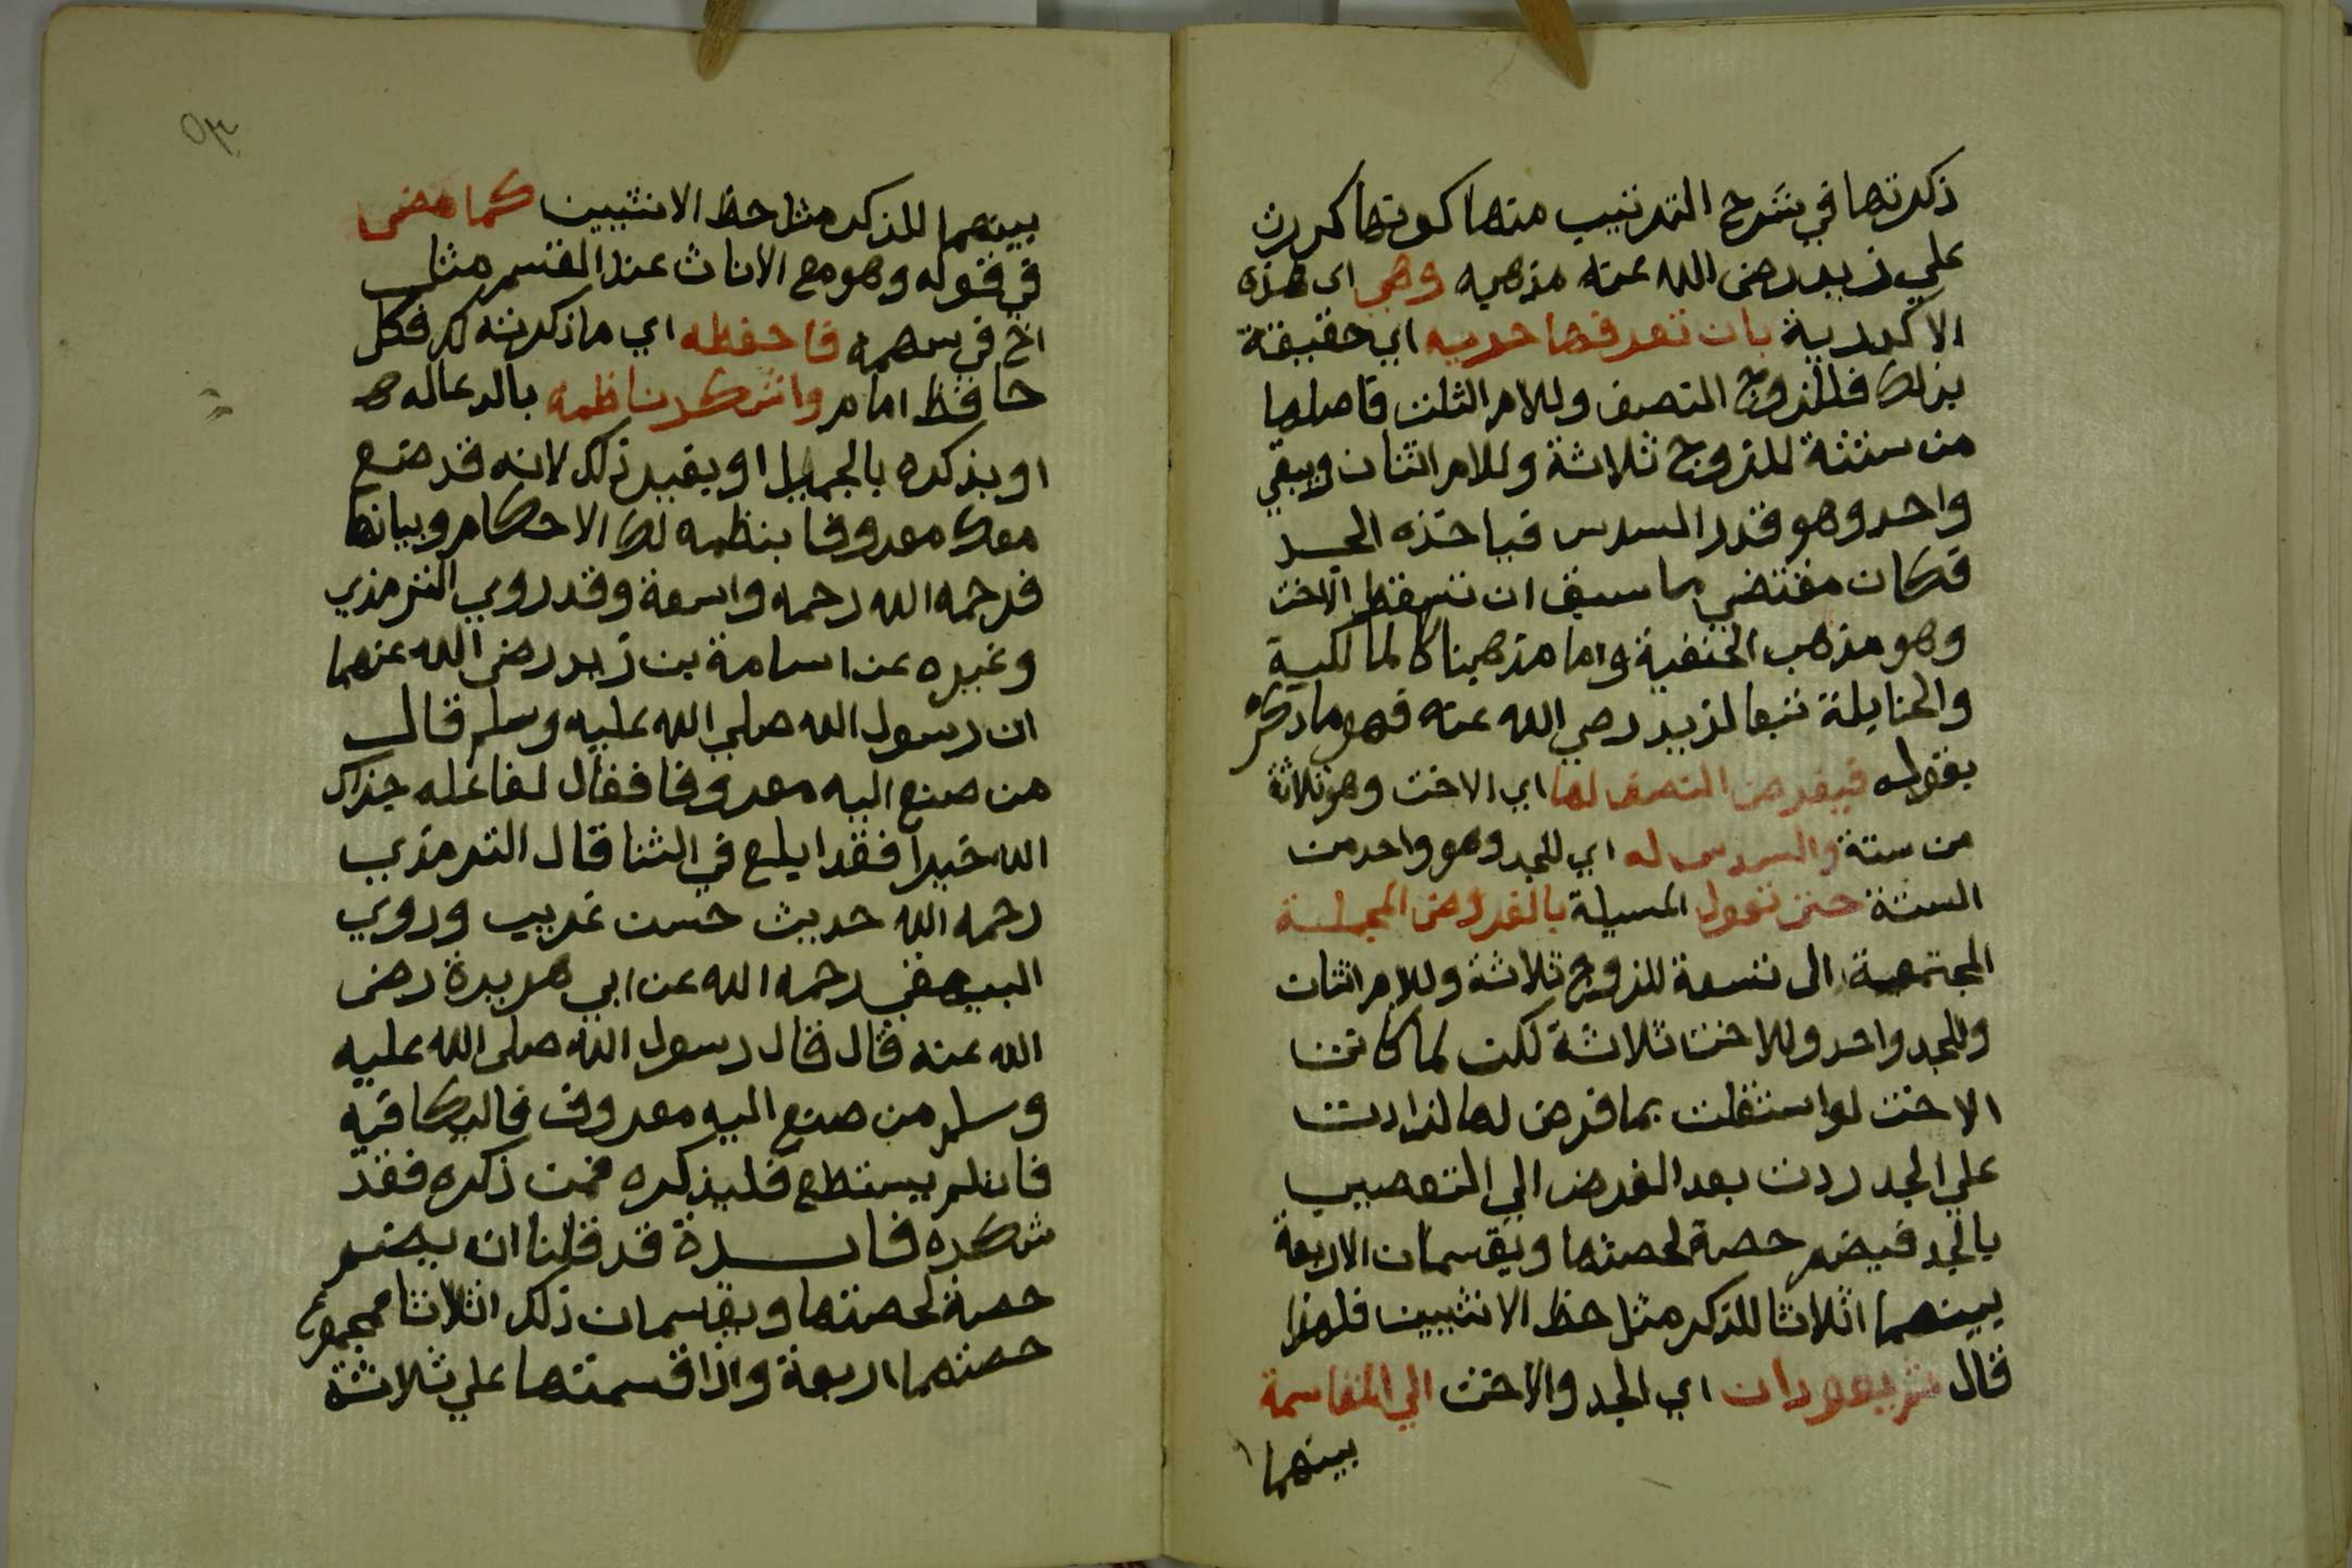 ذكرتها في شرح الترتيب منها كونها كدرت
علي زيد رضي الله عنه مذهبه وهي اي هذه
الاكدرية بان تعرفها حريه اي حقيقة
بذلك فللزوج النصف وللام الثلث فاصلها
من ستة للزوج ثلاثة وللام اثنان ويبقي
واحد وهو قدر السدس فياخذه الجد
فكان مقتضي ما سبق ان تسقط الاخت
وهو مذهب الحنفية واما مذهبنا كالمالكية
والحنابلة تبعا لزيد رضي الله عنه فهو ما ذكره
بقوله فيفرض النصف لها اي الاخت وهو ثلاثة
من ستة والسدس له اي للجد وهو واحد من
الستة حتي تعول المسيلة بالفروض المجملة
المجتمعة الى تسعة للزوج ثلاثة وللام اثنان
وللجد واحد وللاخت ثلاثة لكن لما كانت
الاخت لو استقلت بما فرض لها لزادت
علي الجد ردت بعد الفرض الي التعصيب
بالجد فيضم حصة لحصتها ويقسمان الاربعة
بينهما اثلاثا للذكر مثل حظ الانثيين فلهذا
قال ثم يعودان اي الجد والاخت الي المقاسمة
بينهما
٥٣
بينهما للذكر مثل حظ الانثيين كما مضى
في قوله وهو مع الاناث عند القسم مثل
اخ في سهمه فاحفظه اي ما ذكرته لك فكل
حافظ امام واشكر ناظمه بالدعاله
او بذكره بالجميل او بغير ذلك لانه قد صنع
معك معروفا بنظمه لك الاحكام وبيانها
فرحمه الله رحمه واسعة وقد روي الترمذي
وغيره عن اسامة بن زيد رضي الله عنهما
ان رسول الله صلي الله عليه وسلم قال
من صنع اليه معروفا فقال لفاعله جزاك
الله خيرا فقد ابلغ في الثنا قال الترمذي
رحمه الله حديث حسن غريب وروي
البيهقي رحمه الله عن ابي هريرة رضى
الله عنه قال قال رسول الله صلى الله عليه
وسلم من صنع اليه معروف فاليكافيه
فان لم يستطع فليذكره فمن ذكره فقد
شكره فايدة قد قلنا انه يضم
حصة لحصتها ويقسمان ذلك اثلاثا فمجموع
حصتهما اربعة واذا قسمتها علي ثلاثة